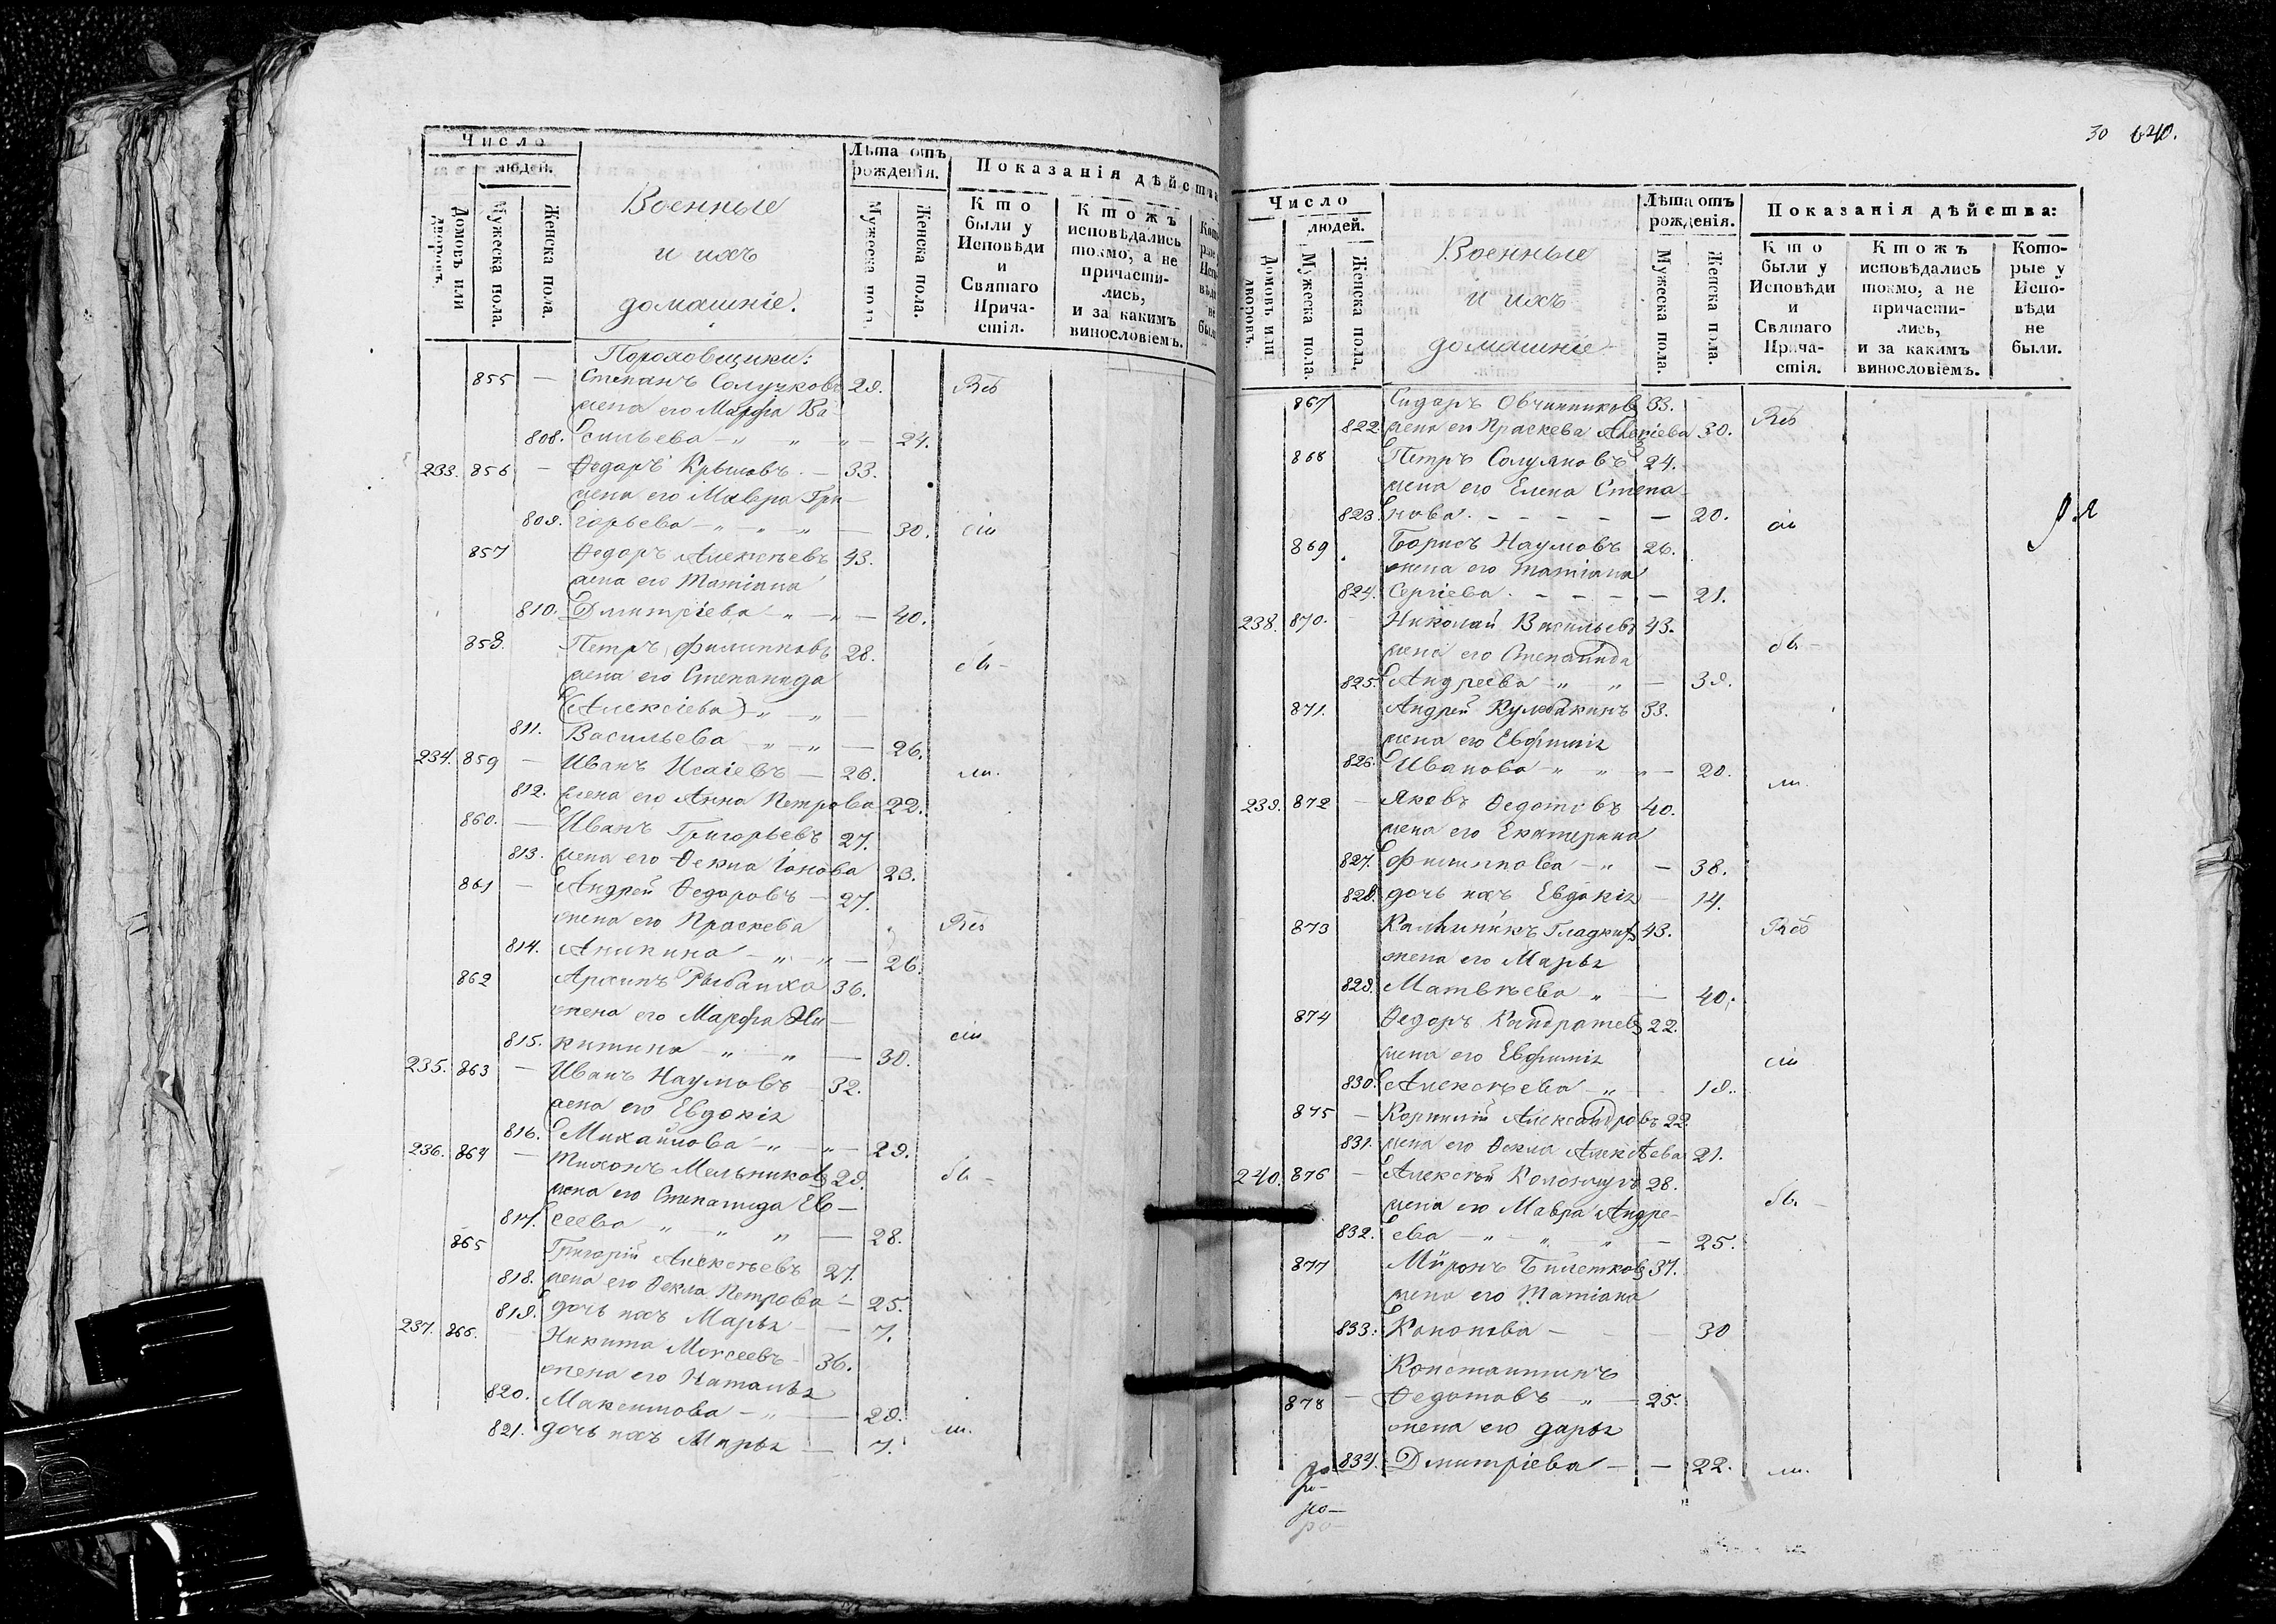 Число
людей.
Домовъ или дворовъ.
Мужеска пола.
Женска пола.
Военные
и ихъ
домашніе.
Лѣта отъ рожденія.
Мужеска пола.
Женска пола.
Показанія дѣйства
Кто были у Исповѣди и Святаго Причастія.
Ктожъ исповѣдались токмо, а не причастились, и за какимъ винословіемъ.
Пороховщики:
855 — Степанъ Солучковъ 29. Всѣ
жена его Марфа Ва-
808. сильева — „ „ „ — 24.
233. 856 — Ѳедоръ Крыловъ. — 33.
жена его Мавра Гри-
809. горьева — „ „ „ — 30. сіи
857 Ѳедоръ Алексѣевъ 43.
жена его Татіана
810. Дмитріева — „ — „ — 40.
858. Петръ Филиповъ 28. бы-
жена его Степанида
(Алексіева) — „ — „
811. Васильева — „ — „ — 26.
234. 859 — Иванъ Исаіевъ — 26. ли.
812. жена его Анна Петрова 22.
860. — Иванъ Григорьевъ 27.
813. жена его Ѳекла Іонова 23.
861 — Андрей Ѳедоровъ — 27.
жена его Праскева Всѣ
814. Аникина — „ — „ — 26.
862 Архипъ Рыбайха 36.
жена его Марфа Ни-
815. китина — „ — „ — 30. сіи
235. 863 — Иванъ Наумовъ 32.
жена его Евдокіа
816. Михайлова — „ — „ — 29.
236. 864 — Тихонъ Мельниковъ 29. бы-
жена его Степанида Ев-
817. сеева „ „ „ — 28.
865 Григорій Алексѣевъ 27.
818. жена его Ѳекла Петрова — 25.
819. дочь ихъ Марья — — 7.
237. 866. — Никита Моисеевъ 36.
жена его Наталья
820. Максимова — „ — 29.
821. дочь ихъ Марья — 7. ли.
30 640.
Число
людей.
Домовъ или дворовъ.
Мужеска пола.
Женска пола.
Военные
и ихъ
домашніе
Лѣта отъ рожденія.
Мужеска пола.
Женска пола.
Показанія дѣйства:
Кто были у Исповѣди и Святаго Причастія.
Ктожъ исповѣдались токмо, а не причастились, и за какимъ винословіемъ.
Которые у Исповѣди не были.
867 Сидаръ Овчинниковъ 33. Всѣ
822. жена его Праскева Алексіева 30.
868 Петръ Солуяновъ 24.
жена его Елена Степа-
823. нова. — — — — — 20. сіи
869 Борисъ Наумовъ 26.
жена его Татіана
824. Сергіева. — — — — 21.
238. 870. — Николай Васильевъ 43. бы-
жена его Степанида
825. Андреева — „ „ — 39.
871. Андрей Кулебакинъ 33.
жена его Евфиміа
826. Иванова — „ „ „ — 20. ли.
239. 872 — Яковъ Ѳедотовъ 40.
жена его Екатерина
827. Филипова — „ — 38.
828. дочь ихъ Евдокіа — 14.
873 Калинникъ Гладкихъ 43. Всѣ
жена его Марья
829. Матвѣева „ — 40.
874 Ѳедоръ Кандратевъ 22.
жена его Евфиміа сіи
830. Алексѣева — „ 19.
875 — Корнилій Александровъ 22.
831. жена его Ѳекла Алексѣева 21.
240. 876 — Алексѣй 28. бы-
жена его Мавра Андре-
832. ева — „ „ „ — 25.
877 Миронъ Билетковъ 37.
жена его Татіана
833. Кононова — — — 30
Константинъ
878 — Ѳедотовъ — „ — 25.
жена его Дарья
834. Дмитріева — — 22. ли.